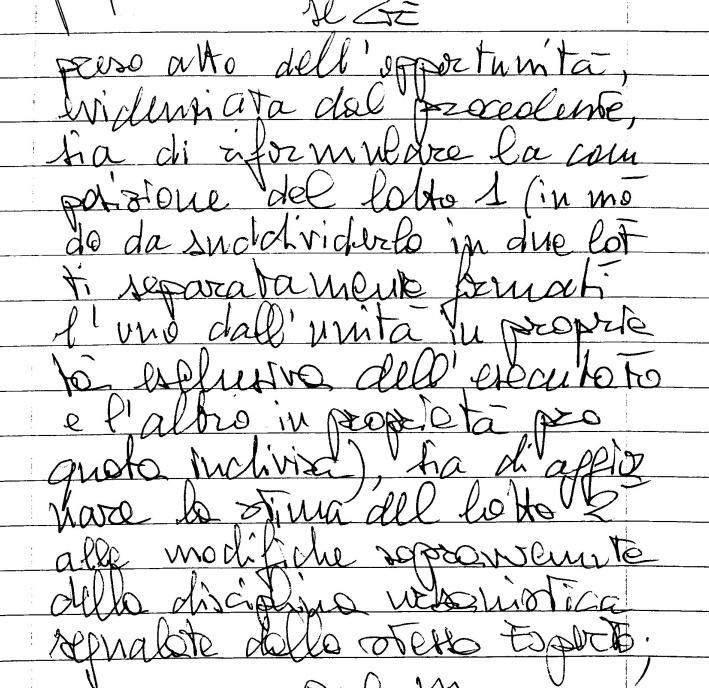 Il GE
preso atto dell'opportunità,
evidenziata dal procedente,
sia di riformulare la com
posizione del lotto 1 (in mo
do da suddividerlo in due lot
ti separatamente formati
l'uno dall'unità in proprie
tà esclusiva dell'esecutato
e l'altro in proprietà pro
quota indivisa), sia di aggior
nare la stima del lotto 2
alle modifiche sopravvenute
della disciplina urbanistica
segnalate dallo stesso Esperto;